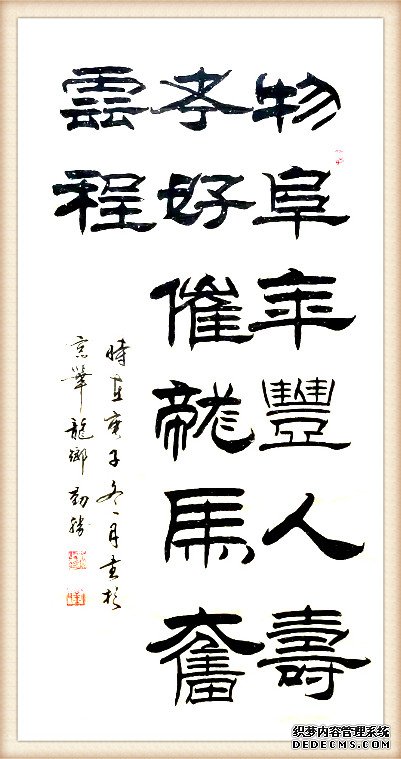 物阜年豐人壽
考好催龍馬奮
雲程
時在庚子冬月書於
京華龍鄉
织梦内容管理系统
DEDECMS.COM